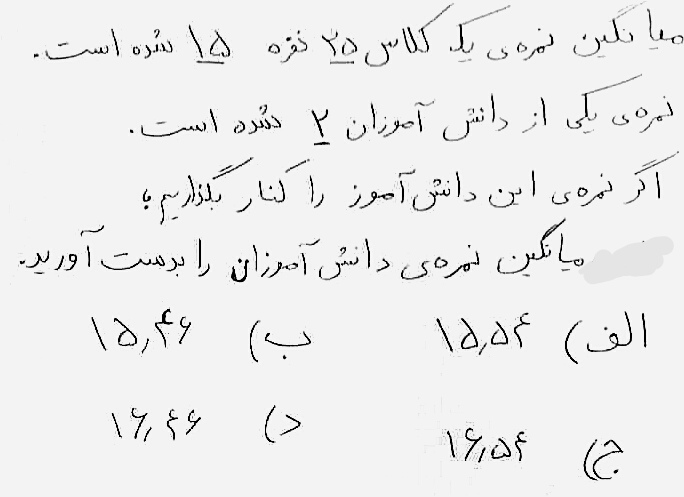 میانگین نمره‌ی یک کلاس ۲۵ نفره ۱۵ شده است.
نمره‌ی یکی از دانش آموزان ۲ شده است.
اگر نمره‌ی این دانش‌آموز را کنار بگذاریم؛
میانگین نمره‌ی دانش آموزان را بدست آورید.
الف) ۱۵٫۵۴ ب) ۱۵٫۴۶
ج) ۱۶٫۵۴ د) ۱۶٫۴۶